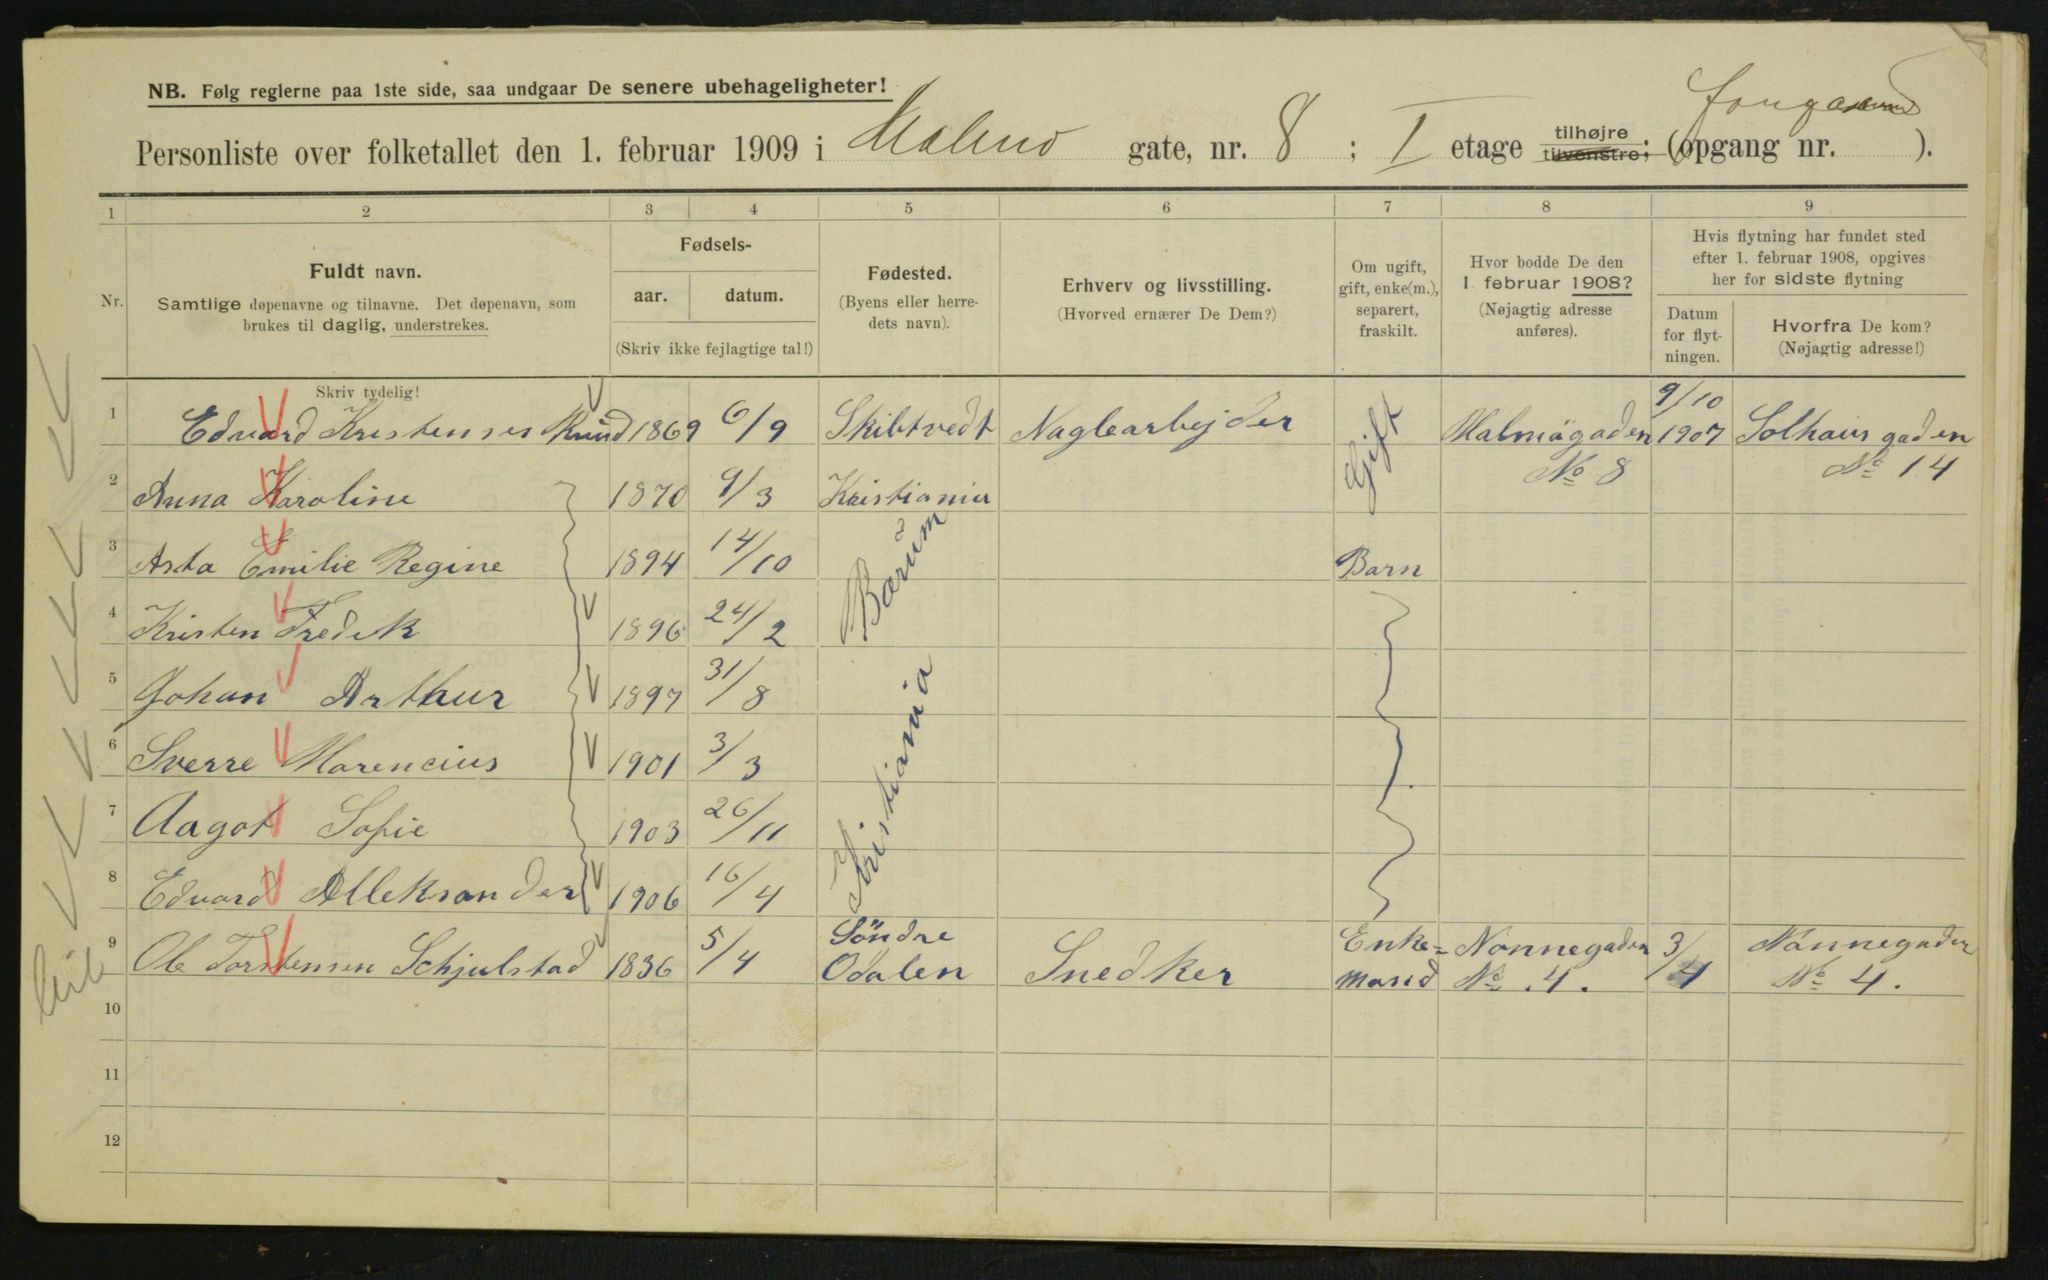 NB. Følg reglerne paa 1ste side, saa undgaar De senere ubehageligheter!
Personliste over folketallet den 1. februar 1909 i Malmö gate, nr. 8 ; I etage tilhøjre tilvenstre; (opgang nr. ).
1 2 3 4 5 6 7 8 9
Nr.
Fuldt navn.
Samtlige døpenavne og tilnavne. Det døpenavn, som
brukes til daglig, understrekes.
Skriv tydelig!
Fødsels-
aar. datum.
(Skriv ikke fejlagtige tal!)
Fødested.
(Byens eller herre-
dets navn).
Erhverv og livsstilling.
(Hvorved ernærer De Dem?)
Om ugift,
gift, enke(m.),
separert,
fraskilt.
Hvor bodde De den
1. februar 1908?
(Nøjagtig adresse
anføres).
Hvis flytning har fundet sted
efter 1. februar 1908, opgives
her for sidste flytning
Datum
for flyt-
ningen.
Hvorfra De kom?
(Nøjagtig adresse!)
1 Edvard Kristensen Ruud 1869 6/9 Skibtvedt Naglearbejder Gift Malmögaden No 8 9/10 1907 Solhaus gaden No 14
2 Anna Karoline 1870 9/3 Kristiania
3 Asta Emilie Regine 1894 14/10 Bærum Barn
4 Kristen Fredik 1896 24/2
5 Johan Arthur 1897 31/8 Kristiania
6 Sverre Marencius 1901 3/3
7 Aagot Sofie 1903 26/11
8 Edvard Alleksander 1906 16/4
9 Ole Torstensen Schjulstad 1836 5/4 Söndre Odalen Snedker Enke=mand Nonnegaden No 4. 3/4 Nonnegaden No 4.
10
11
12